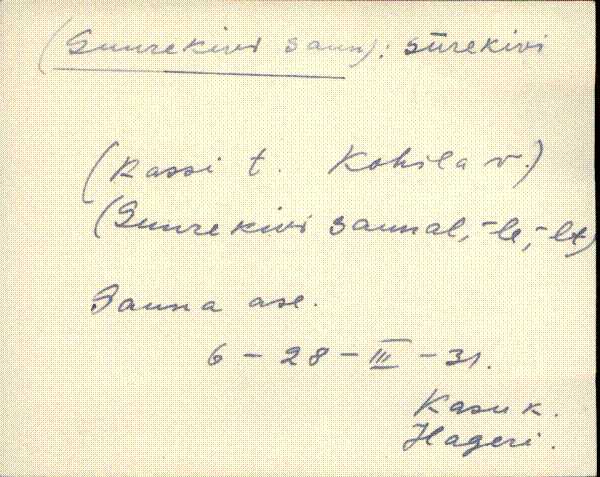 (Suurekivi saun): sūrekivi
(Rassi t. Kohila v.)
(Suurekivi saunal, -le, -lt)
Sauna ase.
6 - 28 - III - 31.
Kasu k.
Hageri.